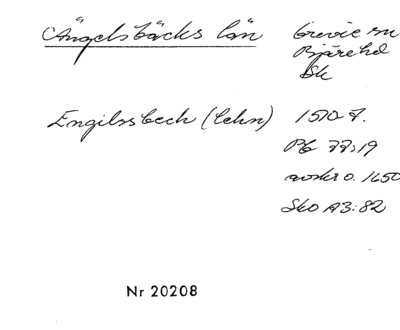 Ängelsbäcks län Grevie sn
Bjäre hd
Sk
Engilssbech (lehn) 1510 f.
PG 77:19
avskr o. 1650
SkO A3:82
Nr 20208